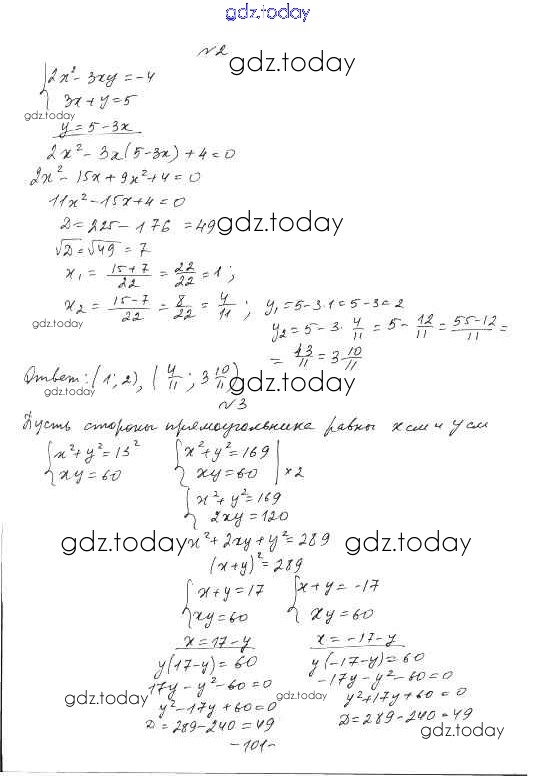 gdz.today
№2
gdz.today
{2x² - 3xy = -4
3x + y = 5
gdz.today
y = 5 - 3x
2x² - 3x(5 - 3x) + 4 = 0
2x² - 15x + 9x² + 4 = 0
11x² - 15x + 4 = 0
D = 225 - 176 = 49
gdz.today
√D = √49 = 7
x₁ = 15+7/22 = 22/22 = 1;
x₂ = 15-7/22 = 8/22 = 4/11; y₁ = 5 - 3·1 = 5 - 3 = 2
gdz.today
y₂ = 5 - 3·4/11 = 5 - 12/11 = 55-12/11 =
= 43/11 = 3 10/11
Ответ: (1; 2), (4/11; 3 10/11)
gdz.today
gdz.today
№3
Пусть стороны прямоугольника равны x см и y см
{x² + y² = 13² {x² + y² = 169
xy = 60 xy = 60 | ×2
{x² + y² = 169
2xy = 120
gdz.today x² + 2xy + y² = 289 gdz.today
(x + y)² = 289
{x + y = 17 {x + y = -17
xy = 60 xy = 60
x = 17 - y x = -17 - y
y(17 - y) = 60 y(-17 - y) = 60
17y - y² - 60 = 0 -17y - y² - 60 = 0
gdz.today gdz.today
y² - 17y + 60 = 0 y² + 17y + 60 = 0
D = 289 - 240 = 49 D = 289 - 240 = 49
gdz.today
-101-